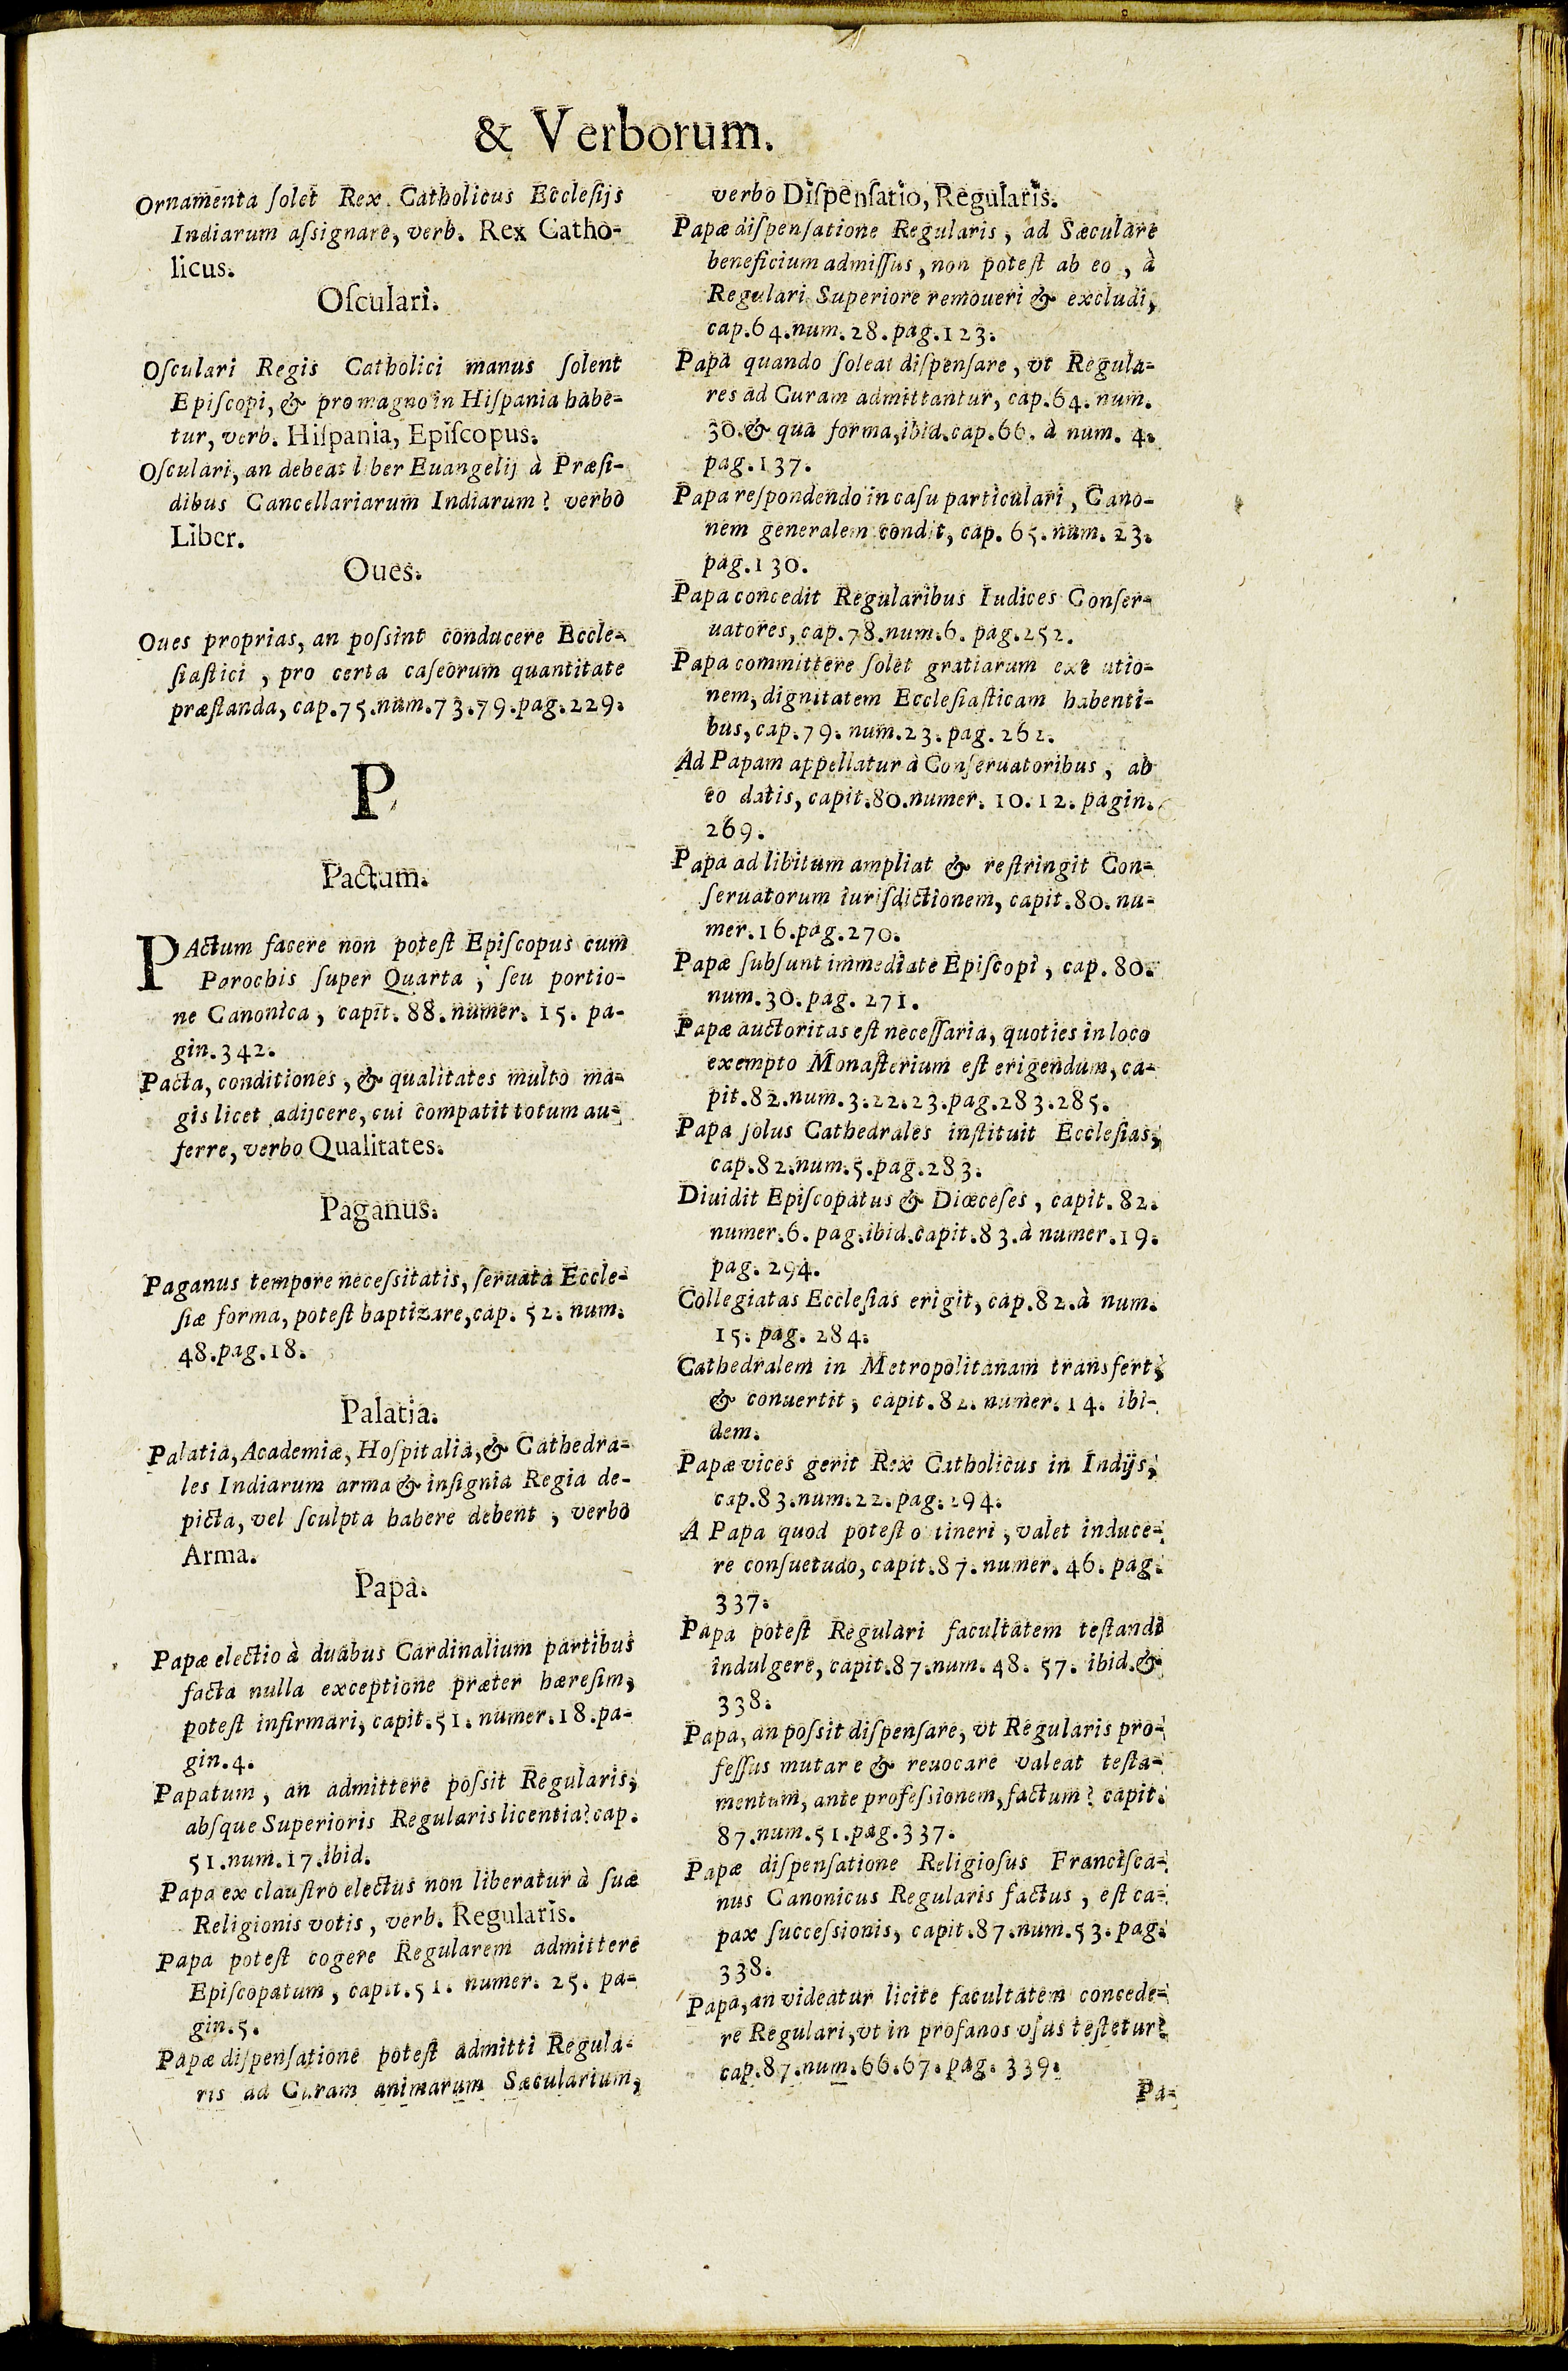 & Verborum.
Ornamenta ſolet Rex Catholicus Eccleſijs
Indiarum aſsignare, verb. Rex Catho-
licus.
Oſculari.
Oſculari Regis Catholici manus ſolent
Epiſcopi, & pro magno in Hiſpania habe-
tur, verb. Hiſpania, Epiſcopus.
Oſculari, an debeat liber Euangelij à Præſi-
dibus Cancellariarum Indiarum? verbo
Liber.
Oues.
Oues proprias, an poſsint conducere Eccle-
ſiaſtici, pro certa caſeorum quantitate
præſtanda, cap.75.num.73.79.pag.229.
P
Pactum.
PActum facere non poteſt Epiſcopus cum
Parochis ſuper Quarta, ſeu portio-
ne Canonica, capit. 88. numer. 15. pa-
gin.342.
Pacta, conditiones, & qualitates multò ma-
gis licet adijcere, cui compatit totum au-
ferre, verbo Qualitates.
Paganus.
Paganus tempore neceſsitatis, ſeruata Eccle-
ſiæ forma, poteſt baptizare, cap. 52. num.
48.pag.18.
Palatia.
Palatia, Academiæ, Hoſpitalia, & Cathedra-
les Indiarum arma & inſignia Regia de-
picta, vel ſculpta habere debent, verbo
Arma.
Papa.
Papæ electio à duabus Cardinalium partibus
facta nulla exceptione præter hæreſim,
poteſt infirmari, capit.51. numer.18.pa-
gin.4.
Papatum, an admittere poſsit Regularis,
abſque Superioris Regularis licentia? cap.
51.num.17.ibid.
Papa ex clauſtro electus non liberatur à ſuæ
Religionis votis, verb. Regularis.
Papa poteſt cogere Regularem admittere
Epiſcopatum, capit.51. numer. 25. pa-
gin.5.
Papæ diſpenſatione poteſt admitti Regula-
ris ad Curam animarum Sæcularium,
verbo Diſpenſatio, Regularis.
Papæ diſpenſatione Regularis, ad Sæculare
beneficium admiſſus, non poteſt ab eo, à
Regulari Superiore remoueri & excludi,
cap.64.num.28.pag.123.
Papa quando ſoleat diſpenſare, vt Regula-
res ad Curam admittantur, cap.64. num.
30.& qua forma, ibid.cap.66. à num. 4.
pag.137.
Papa reſpondendo in caſu particulari, Cano-
nem generalem condit, cap. 65. num. 23.
pag.130.
Papa concedit Regularibus Iudices Conſer-
uatores, cap.78.num.6. pag.252.
Papa committere ſolet gratiarum exe utio-
nem, dignitatem Eccleſiaſticam habenti-
bus, cap.79. num.23. pag. 262.
Ad Papam appellatur à Conſeruatoribus, ab
eo datis, capit.80.numer. 10.12. pagin.
269.
Papa ad libitum ampliat & reſtringit Con-
ſeruatorum iuriſdictionem, capit.80. nu-
mer.16.pag.270.
Papæ ſubſunt immediatè Epiſcopi, cap. 80.
num.30.pag. 271.
Papæ auctoritas eſt neceſſaria, quoties in loco
exempto Monaſterium eſt erigendum, ca-
pit.82.num.3.22.23.pag.283.285.
Papa ſolus Cathedrales inſtituit Eccleſias,
cap.82.num.5.pag.283.
Diuidit Epiſcopatus & Diœceſes, capit. 82.
numer.6. pag.ibid.capit.83.à numer.19.
pag. 294.
Collegiatas Eccleſias erigit, cap.82.à num.
15. pag. 284.
Cathedralem in Metropolitanam transfert,
& conuertit, capit.82. numer.14. ibi-
dem.
Papæ vices gerit Rex Catholicus in Indijs,
cap.83.num.22.pag.294.
A Papa quod poteſt o tineri, valet induce-
re conſuetudo, capit.87. numer. 46. pag.
337.
Papa poteſt Regulari facultatem teſtandi
indulgere, capit.87.num. 48. 57. ibid.&
338.
Papa, an poſsit diſpenſare, vt Regularis pro-
feſſus mutare & reuocare valeat teſta-
mentum, ante profeſsionem, factum? capit.
87.num.51.pag.337.
Papæ diſpenſatione Religioſus Franciſca-
nus Canonicus Regularis factus, eſt ca-
pax ſucceſsionis, capit.87.num.53. pag.
338.
Papa, an videatur licite facultatem concede-
re Regulari, vt in profanos vſus teſtetur?
cap.87.num.66.67. pag. 339.
Pa-